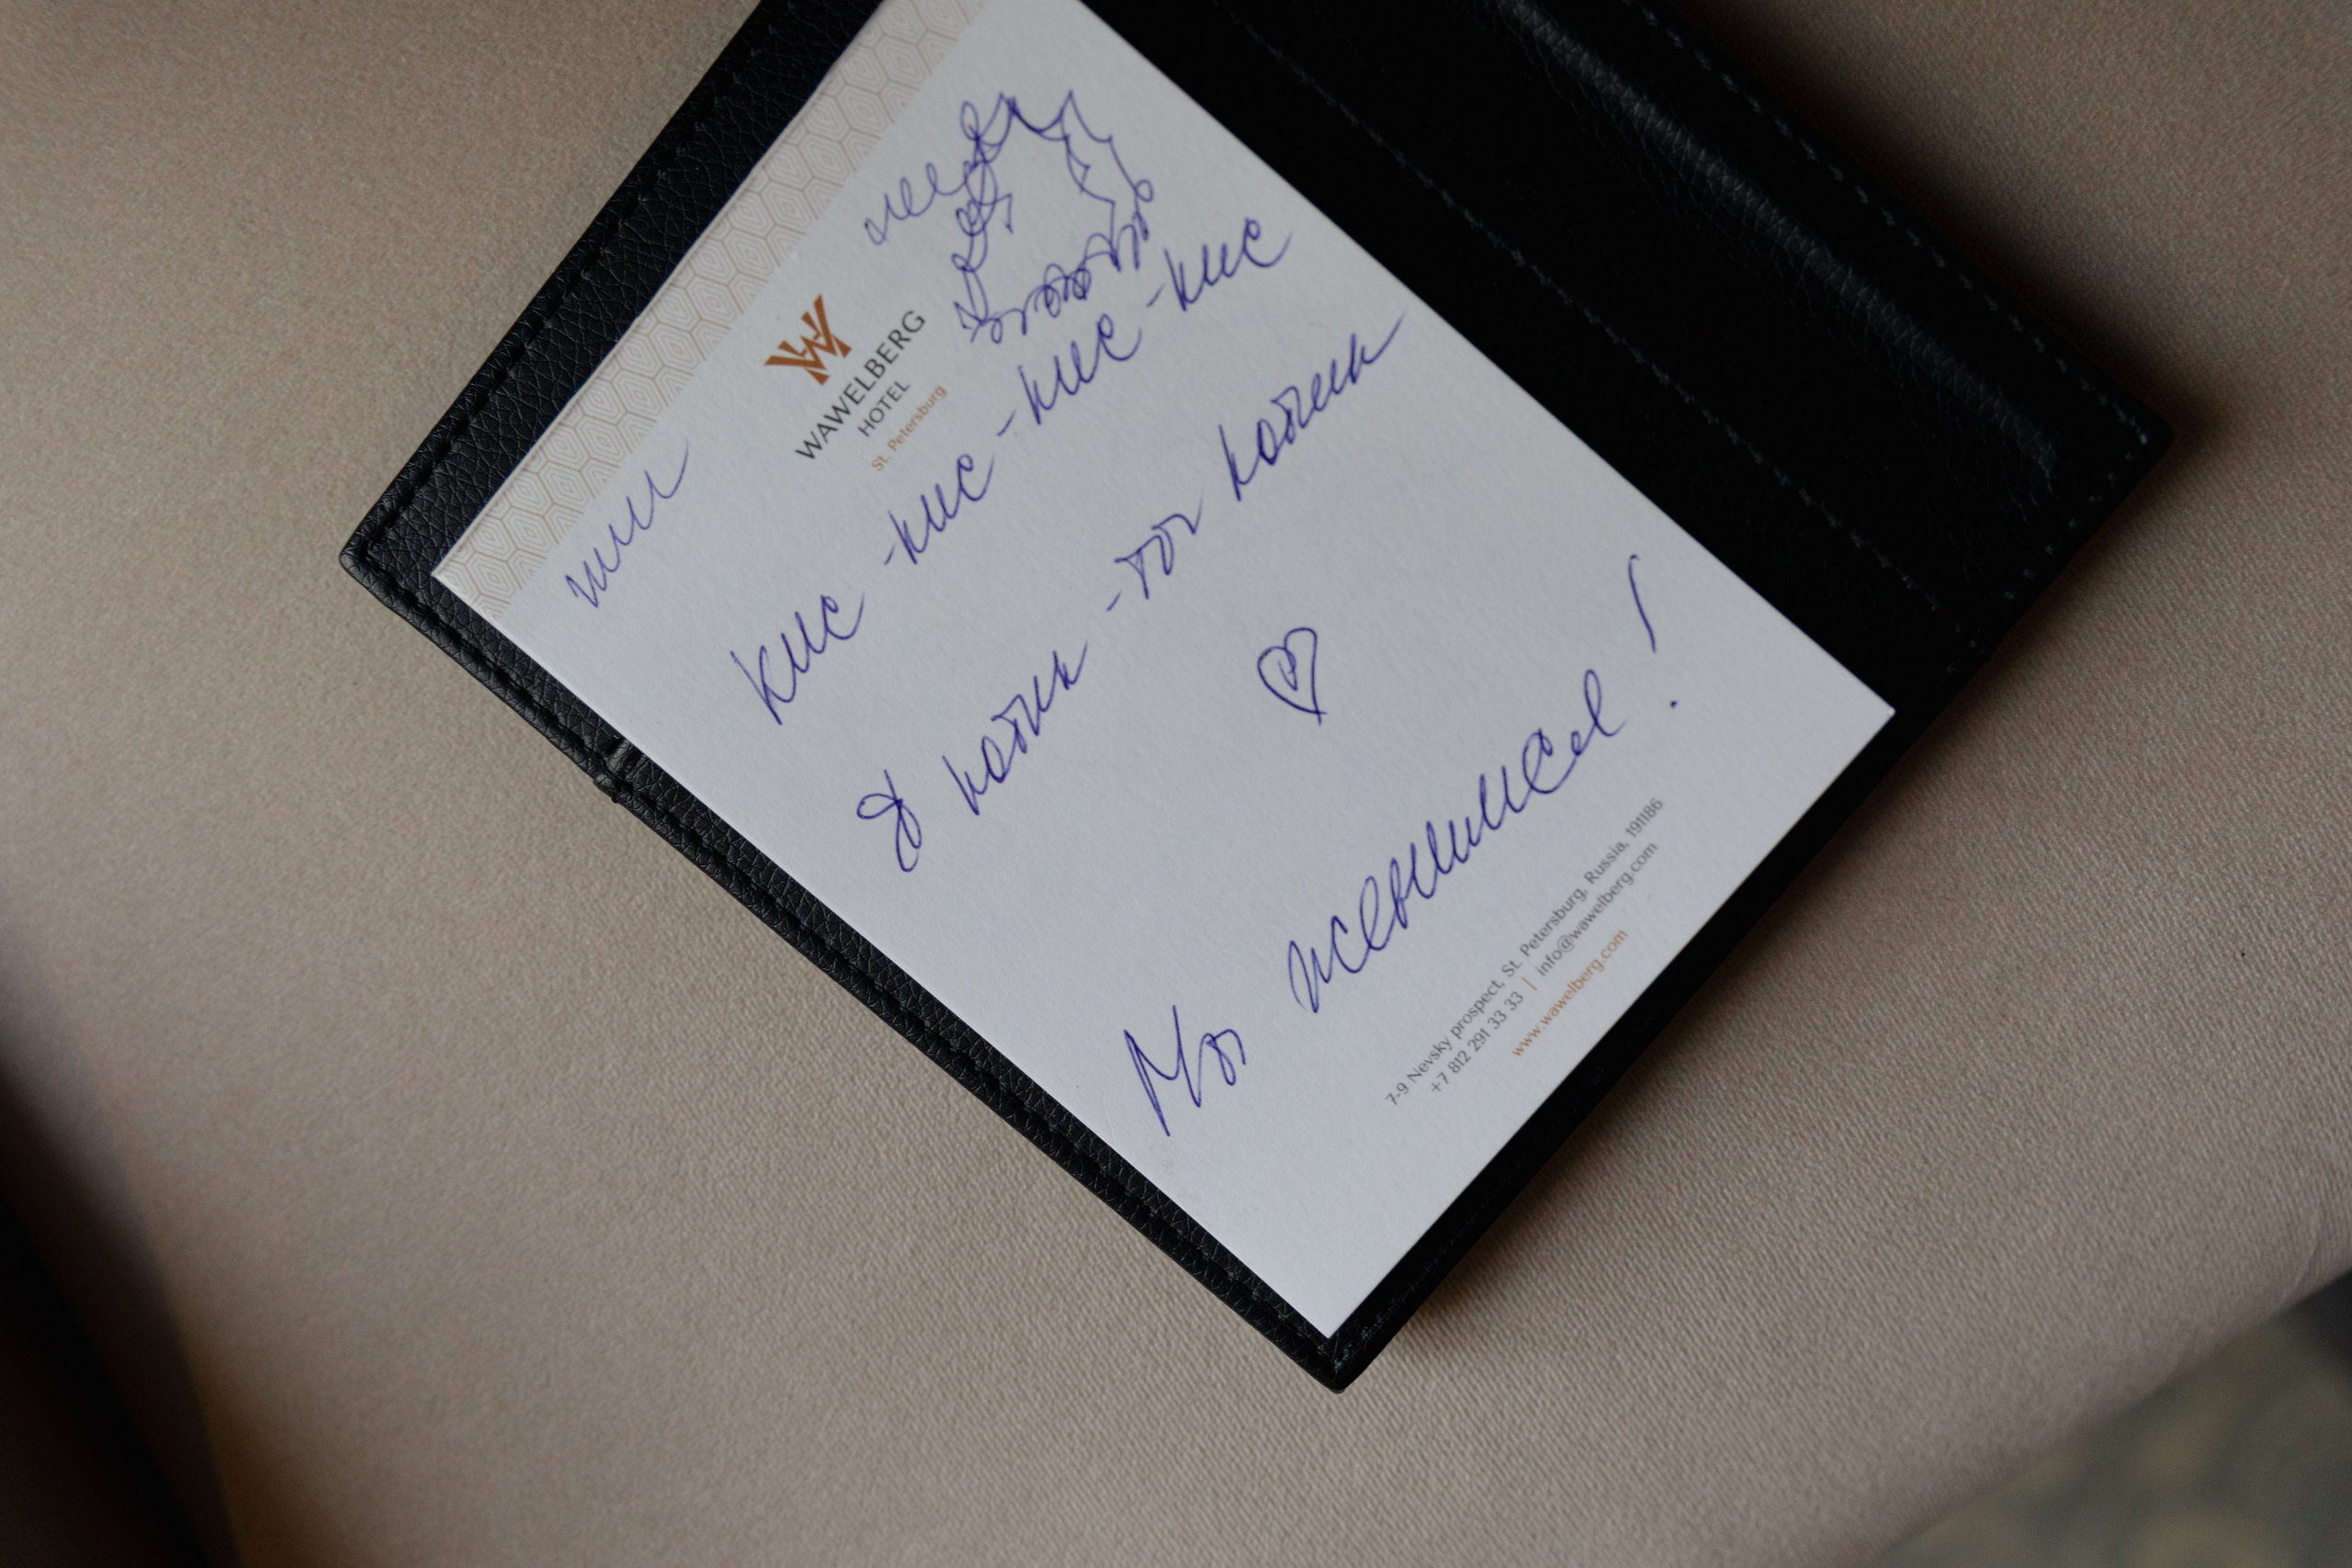 WAWELBERG
HOTEL
St. Petersburg
кис -кис -кис -кис
Я котик -ты котик
Мы женимся!
7-9 Nevsky prospect, St. Petersburg, Russia, 191186
+7 812 291 33 33 | info@wawelberg.com
www.wawelberg.com